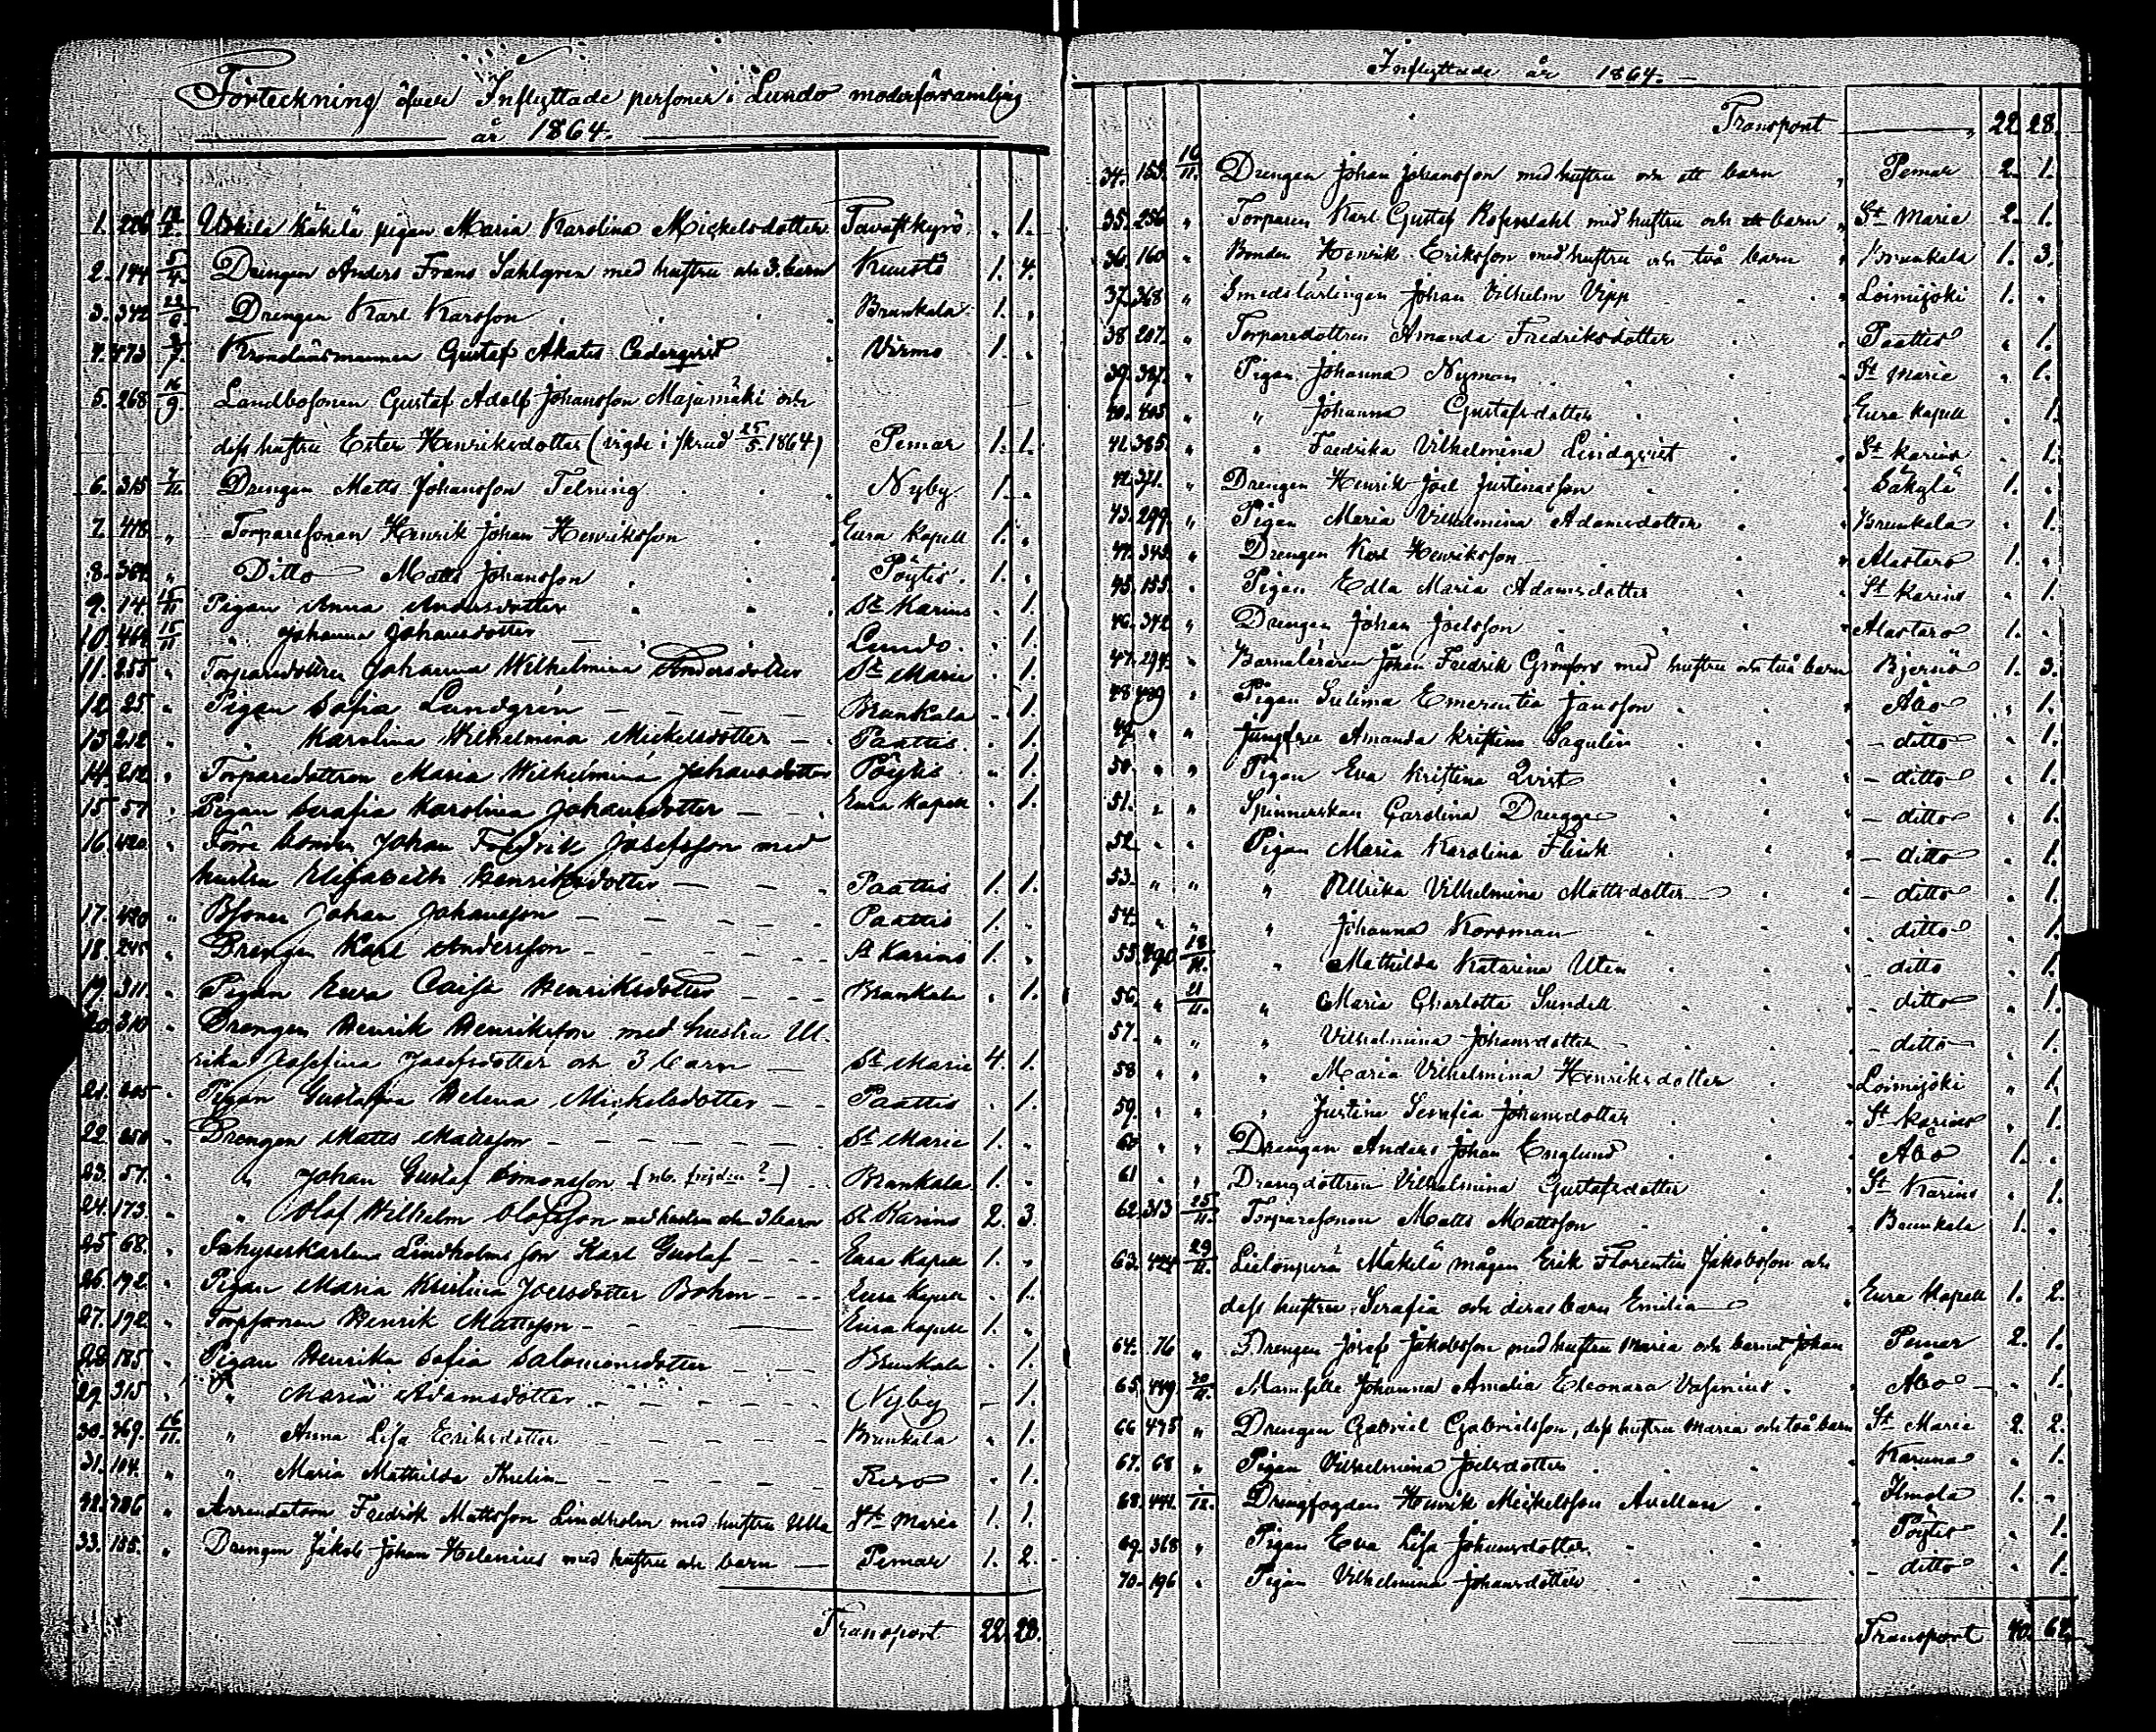 Förteckning öfver Inflyttade personer i Lundo moderförsamling
år 1864.
1. 226 Uskila Käkelä pigan Maria Karolina Mickelsdotter Tavastkyrö „ 1.
2. 144 5/4. Drengen Anders Frans Sahlgren med hustru och 3. barn Kuusto 1. 4.
3. 342 Drengen Karl Karsson Brunkala 1. „
4. 473 Kronolänsmannen Gustaf Akates Cederqvist Virmo 1. „
5. 268 16/9. Landbosonen Gustaf Adolf Johansson Majamäki och
dess hustru Ester Henriksdotter (vigde i Skrud 25/5. 1864) Pemar 1. 1.
6. 315 7/11. Drengen Matts Johansson Telning Nyby 1. „
7. 418 „ Torparesonen Henrik Johan Henriksson Eura Kapell 1. „
8. 364. „ Ditto Matts Johansson Pöytis. 1. „
9. 14. 15/11 Pigan Anna Andersdotter St Karins „ 1.
10 464 15/11 „ Johanna Johansdotter Lundo. „ 1.
11. 255 „ Torparedottren Johanna Wilhelmina Andersdotter St Marie „ 1.
12 25 „ Pigan Sofia Lundgrén Brunkala „ 1.
13 212 „ „ Karolina Wilhelmina Mickelsdotter Paattis. „ 1.
14. 212. „ Torparedottren Maria Wilhelmina Johansdotter Pöytis „ 1.
15 57 „ Pigan Serafia Karolina Johansdotter Eura Kapell „ 1.
16. 420. „ Förre bonden Johan Fredrik Josefsson med
hustru Elisabeth Henriksdotter Paattis 1. 1.
17. 420 „ Bsonen Johan Johansson Paattis 1. „
18. 245 „ Drengen Karl Andersson St Karins 1. „
19. 311. „ Pigan Eva Caisa Henriksdotter Brunkala „ 1.
20 310 „ Drengen Henrik Henriksson med hustru Ul-
rika Josefina Josefsdotter och 3 barn St Marie 4. 1.
21. „ Pigan Gustafva Helena Mickelsdotter Paattis „ 1.
22. 250 „ Drengen Matts Mattsson St Marie 1. „
23. 57. „ „ Johan Gustaf Simonsson (nb. frejden?) Brunkala 1. „
24. 173. „ „ Olof Wilhelm Olofsson med hustru och 3 barn St Karins 2. 3.
25 68. „ Inhyseskarlen Lindholms son Karl Gustaf Eura Kapell 1. „
26. 192. „ Pigan Maria Kristina Joelsdotter Bohm Eura Kapell „ 1.
27. 192. „ Torpsonen Henrik Mattsson Eura Kapell 1. „
28 185. „ Pigan Henrika Sofia Salomonsdotter Brunkala „ 1.
29. 315 „ „ Maria Adamsdotter Nyby – 1.
30. 369. 16/11. „ Anna Lisa Eriksdotter Brunkala „ 1.
31. 104. „ „ Maria Mathilda Thulin Reso „ 1.
32. „ Arrendatorn Fredrik Mattsson Lindholm med hustru Ulla St Maria 1. 1.
33. 185. „ Drengen Jakob Johan Helenius med hustru och barn Pemar 1. 2.
Transport 22. 28.
Inflyttade år 1864.
Transport 22 28.
34. 153. 16/11. Drengen Johan Johansson med hustru och ett barn Pemar 2. 1.
35. 256 „ Torparen Karl Gustaf Roksdahl med hustru och ett barn St Marie 2. 1.
36. 160 „ Bonden Henrik Eriksson med hustru och två barn Brunkala 1. 3.
37. 368 „ Smedslärlingen Johan Vilhelm Vipp Loimijoki 1. „
38 207. „ Torparedottren Amanda Fredriksdotter Paattis „ 1.
39. 327. „ Pigan Johanna Nyman St Marie „ 1.
40. 405 „ „ Johanna Gustafsdotter Eura Kapell „ 1.
41. 385. „ „ Fredrika Vilhelmina Lindqvist St Karins „ 1.
42. 371. „ Drengen Henrik Joel Justinasson Säkylä 1. „
43. 299. „ Pigan Maria Vilhelmina Adamsdotter Brunkala „ 1.
44. 343. „ Drengen Karl Henriksson Alastaro 1. „
45. 155. „ Pigan Edla Maria Adamsdotter St Karins „ 1.
46. 342 „ Drengen Johan Joelsson Alastaro 1. „
47. 294. „ Barnaläraren Johan Fredrik Grönfors med hustru och två barn Bjernå 1. 3.
48 489 „ Pigan Sulima Emerentia Jansson Åbo „ 1.
49. „ „ Jungfru Amanda Kristina Sagulin ditto „ 1.
50. „ „ Pigan Eva Kristina Qvist ditto „ 1.
51. „ „ Spinnerskan Carolina Drugge ditto „ 1.
52. „ „ Pigan Maria Karolina Flink ditto „ 1.
53. „ „ „ Ullrika Vilhelmina Mattsdotter ditto „ 1.
54. „ „ „ Johanna Korsman ditto „ 1.
55. 490 18/11. „ Mathilda Katarina Uten ditto „ 1.
56. „ 21/11. „ Maria Charlotta Sundell ditto „ 1.
57. „ „ „ Vilhelmina Johansdotter ditto „ 1.
58 „ „ „ Maria Vilhelmina Henriksdotter Loimijoki „ 1.
59. „ „ „ Justina Serafia Johansdotter St Karins „ 1.
60 „ „ Drengen Anders Johan Englund Åbo 1. „
61 „ „ Drengdottren Vilhelmina Gustafsdotter St Karins „ 1.
62. 313 25/11. Torparesonen Matts Mattsson Brunkala 1. „
63. 424 29/11. Mäkelä mågen Erik Florentin Jakobsson och
dess hustru Serafia och deras barn Emilia Eura Kapell 1. 2.
64. 76 „ Drengen Josef Jakobsson med hustru Maria och barnet Johan Pemar 2. 1.
65. 489 20/11. Mamselle Johanna Amalia Eleonara Vasenius. Åbo „ 1.
66 475 „ Drengen Gabriel Gabrielsson, dess hustru Maria och två barn St Marie 2. 2.
67. 68 „ Pigan Vilhelmina Joelsdotter Karuna „ 1.
68. 441. Drengfogden Henrik Mickelsson Avellan Himola 1. „
69. 368 „ Pigan Eva Lisa Johansdotter Pöytis „ 1.
70. 196 „ Pigan Vilhelmina Johansdotter ditto „ 1.
Transport 40. 62.